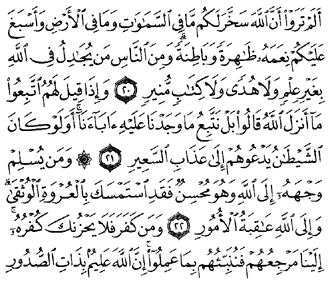 أَلَمْ تَرَوْا۟ أَنَّ ٱللَّهَ سَخَّرَ لَكُم مَّا فِى ٱلسَّمَٰوَٰتِ وَمَا فِى ٱلْأَرْضِ وَأَسْبَغَ
عَلَيْكُمْ نِعَمَهُۥ ظَٰهِرَةً وَبَاطِنَةً ۗ وَمِنَ ٱلنَّاسِ مَن يُجَٰدِلُ فِى ٱللَّهِ
بِغَيْرِ عِلْمٍ وَلَا هُدًى وَلَا كِتَٰبٍ مُّنِيرٍ ٢٠ وَإِذَا قِيلَ لَهُمُ ٱتَّبِعُوا۟
مَآ أَنزَلَ ٱللَّهُ قَالُوا۟ بَلْ نَتَّبِعُ مَا وَجَدْنَا عَلَيْهِ ءَابَآءَنَآ ۚ أَوَلَوْ كَانَ
ٱلشَّيْطَٰنُ يَدْعُوهُمْ إِلَىٰ عَذَابِ ٱلسَّعِيرِ ٢١ ۞ وَمَن يُسْلِمْ
وَجْهَهُۥٓ إِلَى ٱللَّهِ وَهُوَ مُحْسِنٌ فَقَدِ ٱسْتَمْسَكَ بِٱلْعُرْوَةِ ٱلْوُثْقَىٰ ۗ
وَإِلَى ٱللَّهِ عَٰقِبَةُ ٱلْأُمُورِ ٢٢ وَمَن كَفَرَ فَلَا يَحْزُنكَ كُفْرُهُۥٓ ۚ
إِلَيْنَا مَرْجِعُهُمْ فَنُنَبِّئُهُم بِمَا عَمِلُوٓا۟ ۚ إِنَّ ٱللَّهَ عَلِيمٌۢ بِذَاتِ ٱلصُّدُورِ